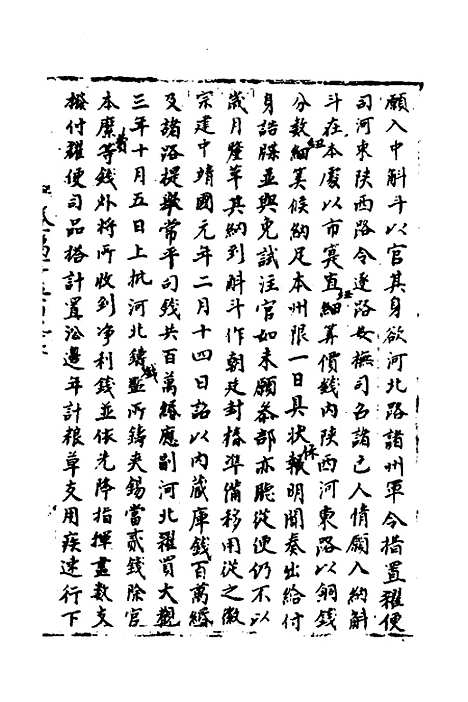 願入中斛斗以官其身欲河北路諸州軍令措置糴便
司河東陝西路令逐路安撫司召諸色人情願入納斛
斗在本處以市裏直紐細算價錢內陝西河東路以銅錢
分數紐細算候納足本州限一日具狀保報明聞奏出給付
身誥牒並與免試注官如未願參部亦聽從便仍不以
歲月釐革其納到斛斗作朝廷封樁準備移用從之徽
宗建中靖國元年二月十四日詔以內藏庫錢百萬緡
及諸路提舉常平司錢共百萬緡應副河北糴買大觀
三年十月五日上批河北鑄錢監所鑄夾錫當貳錢除官
本縻費等錢外將所收到淨利錢並依先降指揮盡數支
撥付糴便司品搭計置沿邊年計粮草支用疾速行下